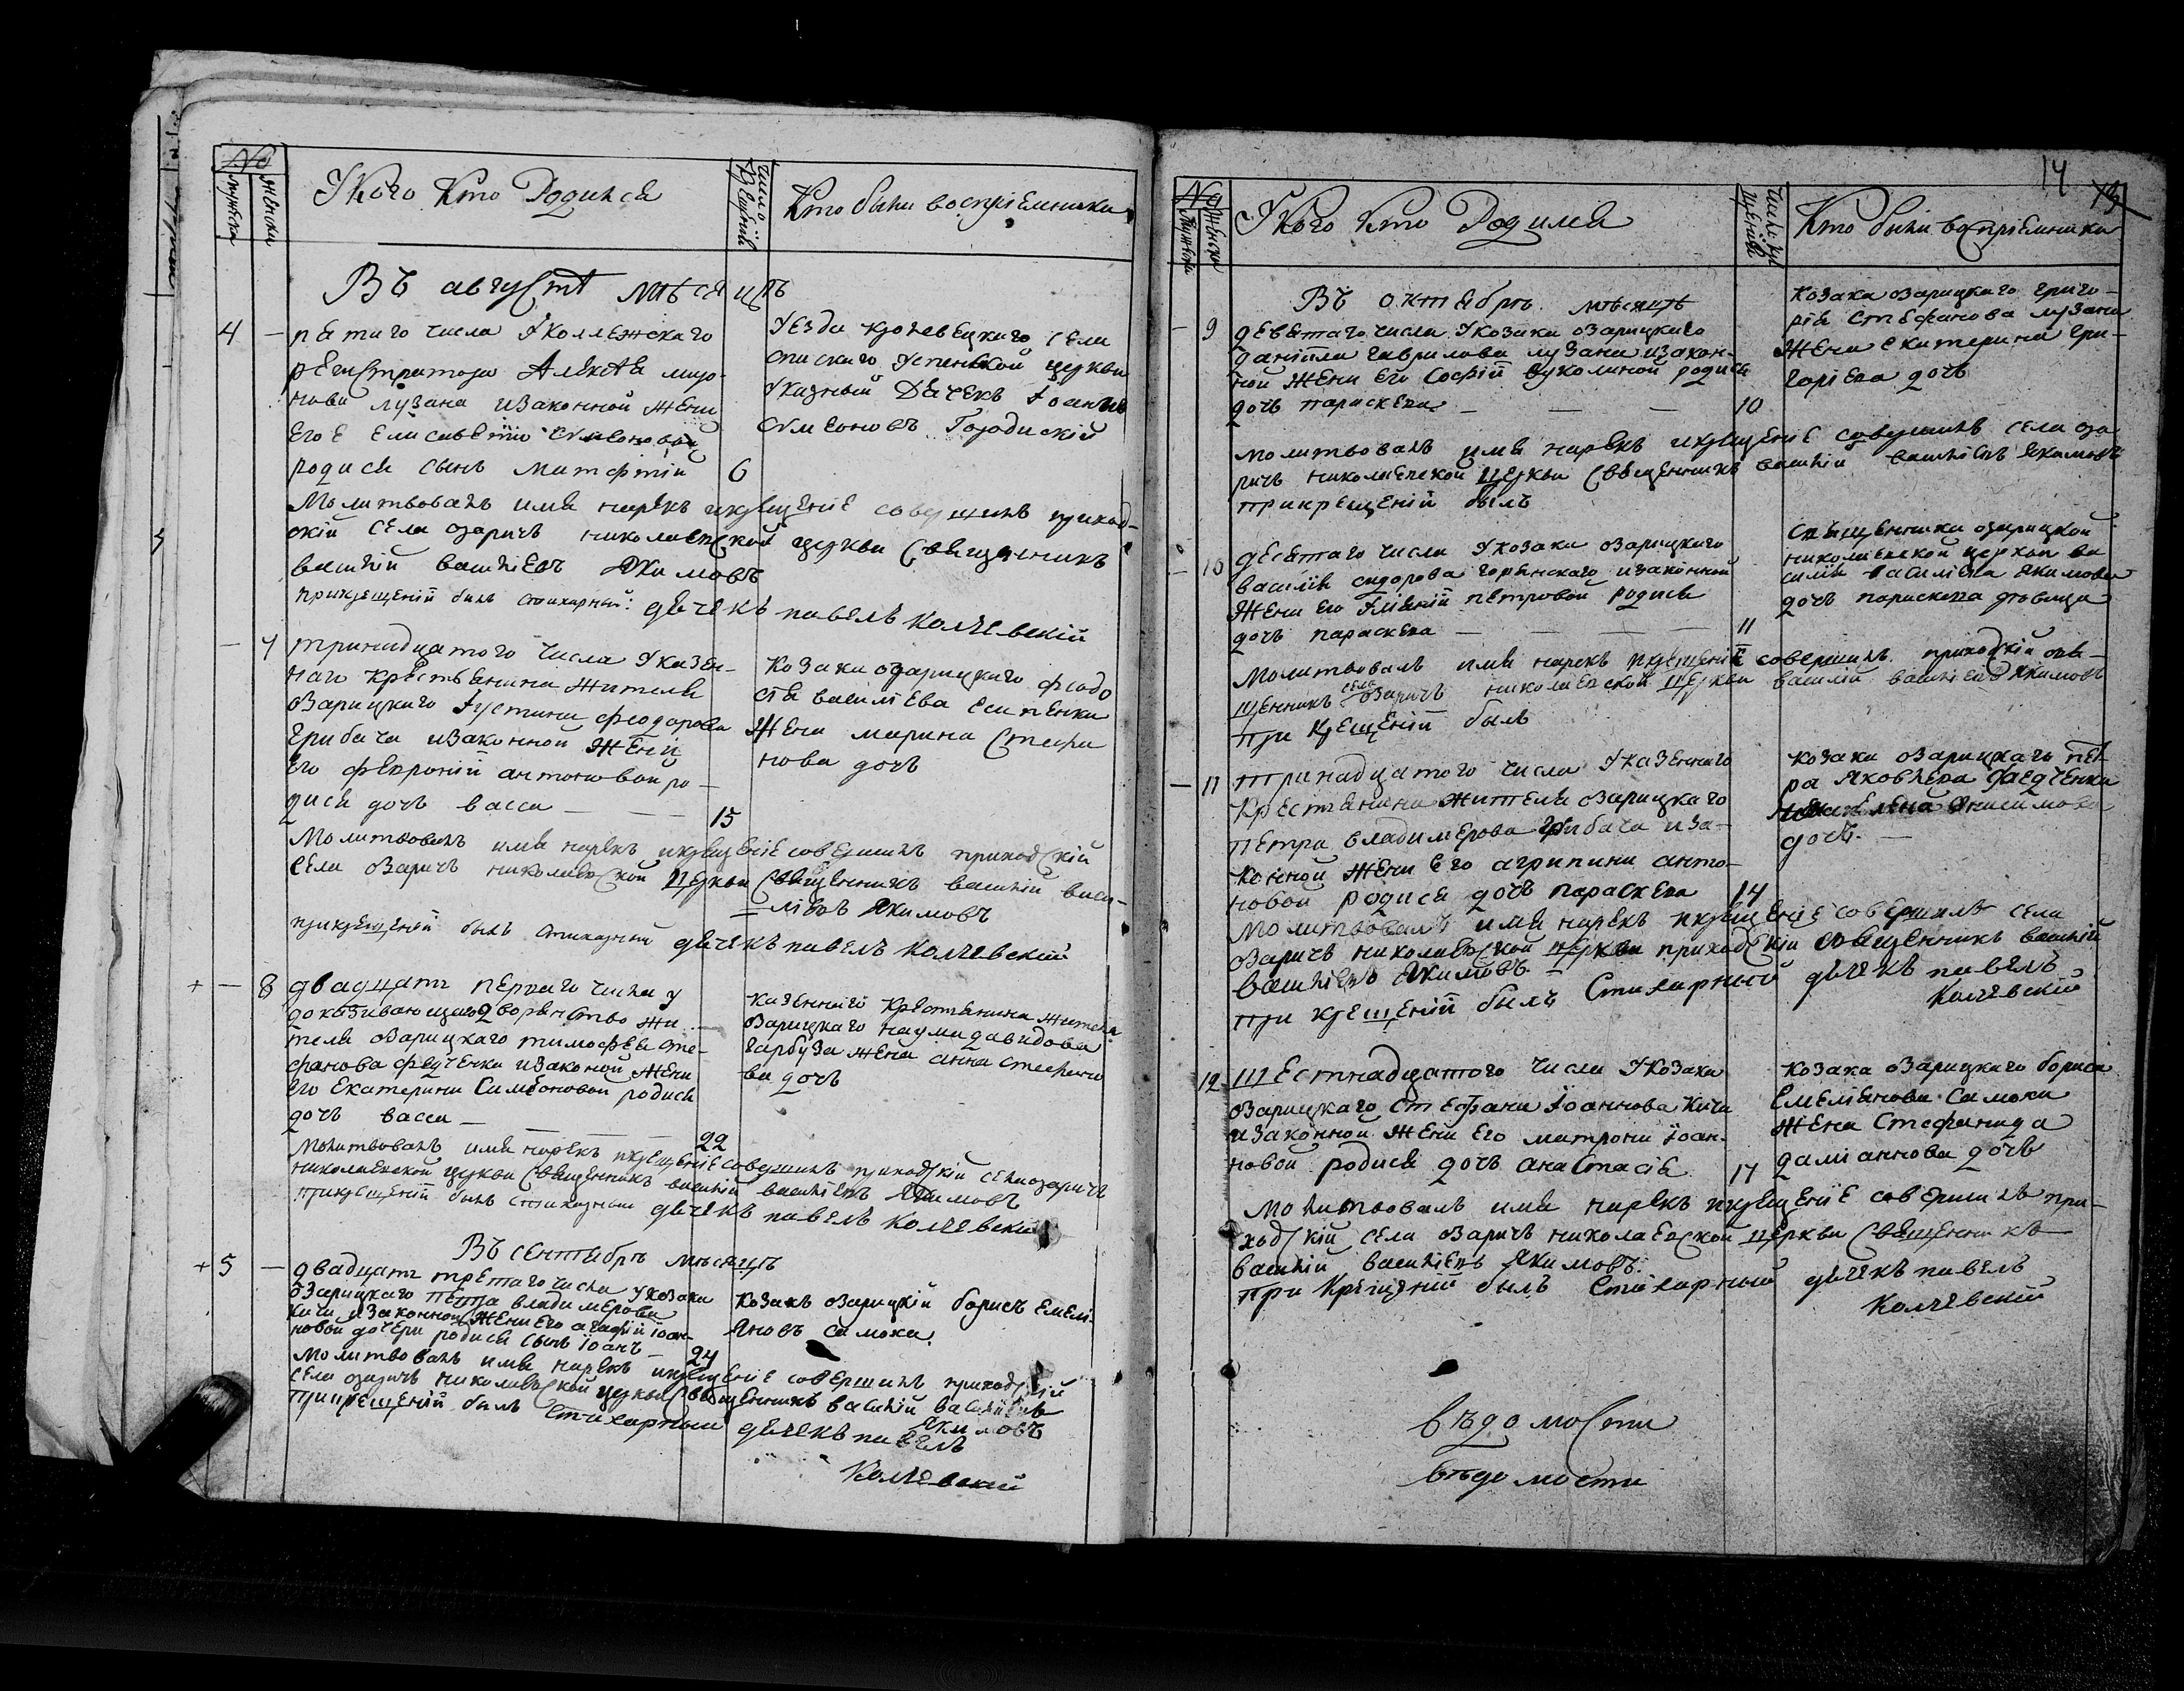 №
мужеска
женски
У Кого Кто Родился
число крещеній
Кто были воспріемники
Въ августѣ мѣсяцѣ
4 — пятаго числа У Коллежскаго
регистратора Алексѣя миро-
нова лузана изаконной жени
его Елисаветы Симеоновой
родися сынъ матфтій 6
уезда кролевецкаго села
спаскаго Успенской церкви
Указный Дячекъ Іоаннъ
симеоновъ Городискій
Молитвовалъ имя нарекъ икрещеніе совершилъ приход-
скій села озаричъ николаевской церкви Священникъ
василій василіевъ Якимовъ
прикрещеній былъ стихарный дячекъ павелъ Колчевскій
— 7 тринадцатого числа У казен-
наго крестьянина жителя
озарицкаго Іустина феодорова
грибача изаконной жени
его февроній антоновой ро-
дися дочъ васса — 15
Козака озарицкаго феодо
сія василіева есипенка
жена марина Стефа
нова дочъ
Молитвовалъ имя нарекъ икрещеніе совершилъ приходскій
села озаричъ николаевской церкви Священникъ василій васи-
ліевъ Якимовъ
прикрещеній былъ стихарный дячекъ павелъ колчевскій
+ — 8 двадцатъ перваго числа у
доказивающаго дворянство жи-
теля озарицкаго тимофея сте-
фанова федченка изаконой жени
его Екатерини Симеоновой родися
дочъ васса — 22
казеннаго крестьянина жителя
озарицкаго наума давидова
гарбуза жена анна стефано
ва дочъ
Молитвовалъ имя нарекъ икрещеніе совершилъ приходскій села озаричъ
николаевской церкви Священникъ василій василіевъ Якимовъ
прикрещеній былъ стихарный дячекъ павелъ колчевскій
Въ сентябрѣ мѣсяцѣ
+ 5 — двадцатъ третаго числа У козака
озарицкаго петра владимерова
кичи изаконной жени его агафій іоан-
новой дочери родися сынъ іоанъ — 24
козакъ озарицкій борисъ емелі-
яновъ самоха
Молитвовалъ имя нарекъ икрещеніе совершилъ приходскій
села озаричъ николаевской церкви Священникъ василій василіевъ
Якимовъ
прикрещеній былъ стихарный дячекъ павелъ
Колчевскій
14
13
№
мужеска
женска
У Кого Кто Родился
число крещенія
Кто были воспріемники
Въ октябрѣ мѣсяцѣ
— 9 девятаго числа У козака озарицкаго
даніила гаврилова лузана изакон-
ной жени его Софій вуколиной родися
дочъ параскева — — — 10
козака озарицкаго григо-
рія стефанова лузана
жена екатерина гри-
горіева дочъ
молитвовалъ имя нарекъ икрещеніе совершилъ села оза
ричъ николаевской церкви Священникъ василій василіевъ якимовъ
прикрещеній былъ
— 10 десятаго числа У козака озарицкаго
василія сидорова горянскаго изаконной
жени его Уліяній петровой родися
дочъ параскева — — — 11
священника озарицкой
николаевской церкви ва
силія василіева якимова
дочъ параскева дѣвица
Молитвовалъ имя нарекъ икрещеніе совершилъ приходскій свя-
щенникъ села озаричъ николаевской церкви василій василіевъ якимовъ
при крещеній былъ
— 11 тринадцатого числа У казеннаго
крестянина жителя озарицкаго
петра владимерова грибача иза-
конной жени его агрипини анто-
новой родися дочъ параскева 14
козака озарицкаго пет-
ра яковлева федченка
жена елена анисимова
дочъ. —
Молитвовалъ имя нарекъ икрещеніе совершилъ села
озаричъ николаевской церкви приходскій священникъ василій
василіевъ якимовъ —
при крещеній былъ Стихарный дячекъ павелъ
колчевскій
12 шестнадцатого числа У козака
озарицкаго стефана Іоаннова кичи
изаконной жени его матрони іоан-
новой родися дочъ анастасія 17
козака озарицкаго бориса
емеліянова самохи
жена Стефанида
даміаннова дочъ
Молитвовалъ имя нарекъ икрещеніе совершилъ при-
ходскій села озаричъ николаевской церкви Священникъ
василій василіевъ якимовъ.
при крещеній былъ Стихарный дячекъ павелъ
Колчевскій
вѣдомости
вѣдомости